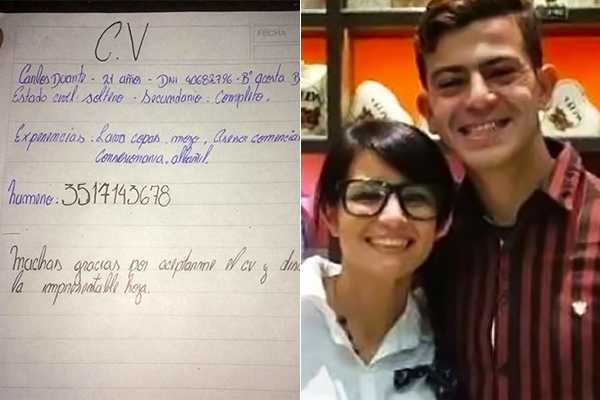 FECHA
C.V
Carlos Duarte - 21 años - DNI 40682796 - Bº acosta B
Estado civil: soltero - Secundario: Completo.
Experiencias. Lava copas. mozo. Asesor comercial
Consecionaria. albañil.
humero: 3517143678
Muchas gracias por aceptarme el cv y disc
la impresentable hoja.